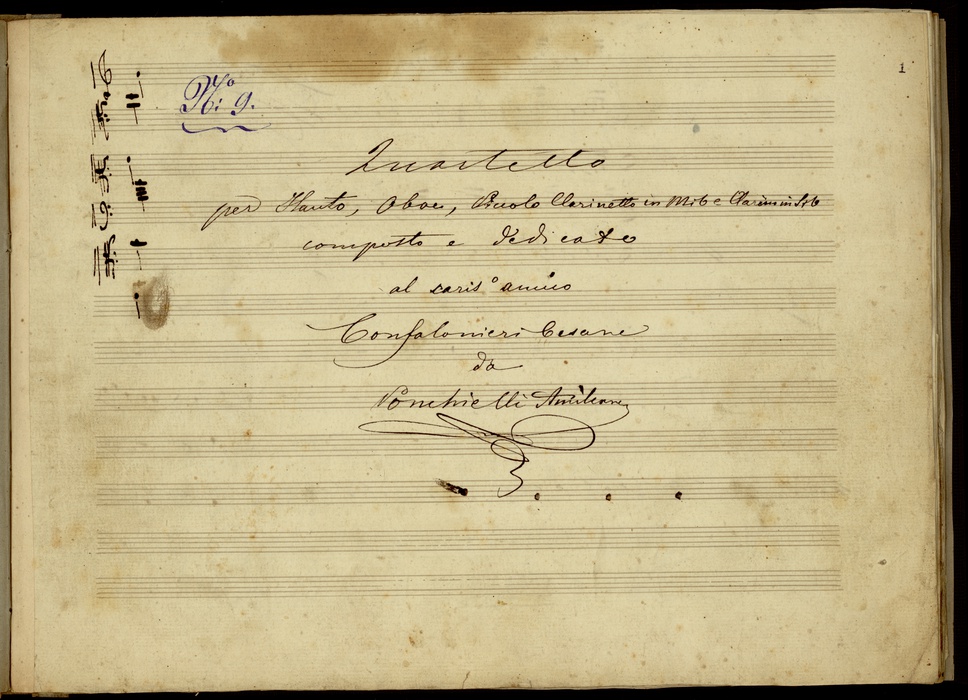 1
Nº: 9.
Quartetto
per Flauto, Oboe, Piccolo Clarinetto in Mib e Clarino in Sib
composto e dedicato
al caris.º amico
Confalonieri Cesare
da
Ponchielli Amilcare